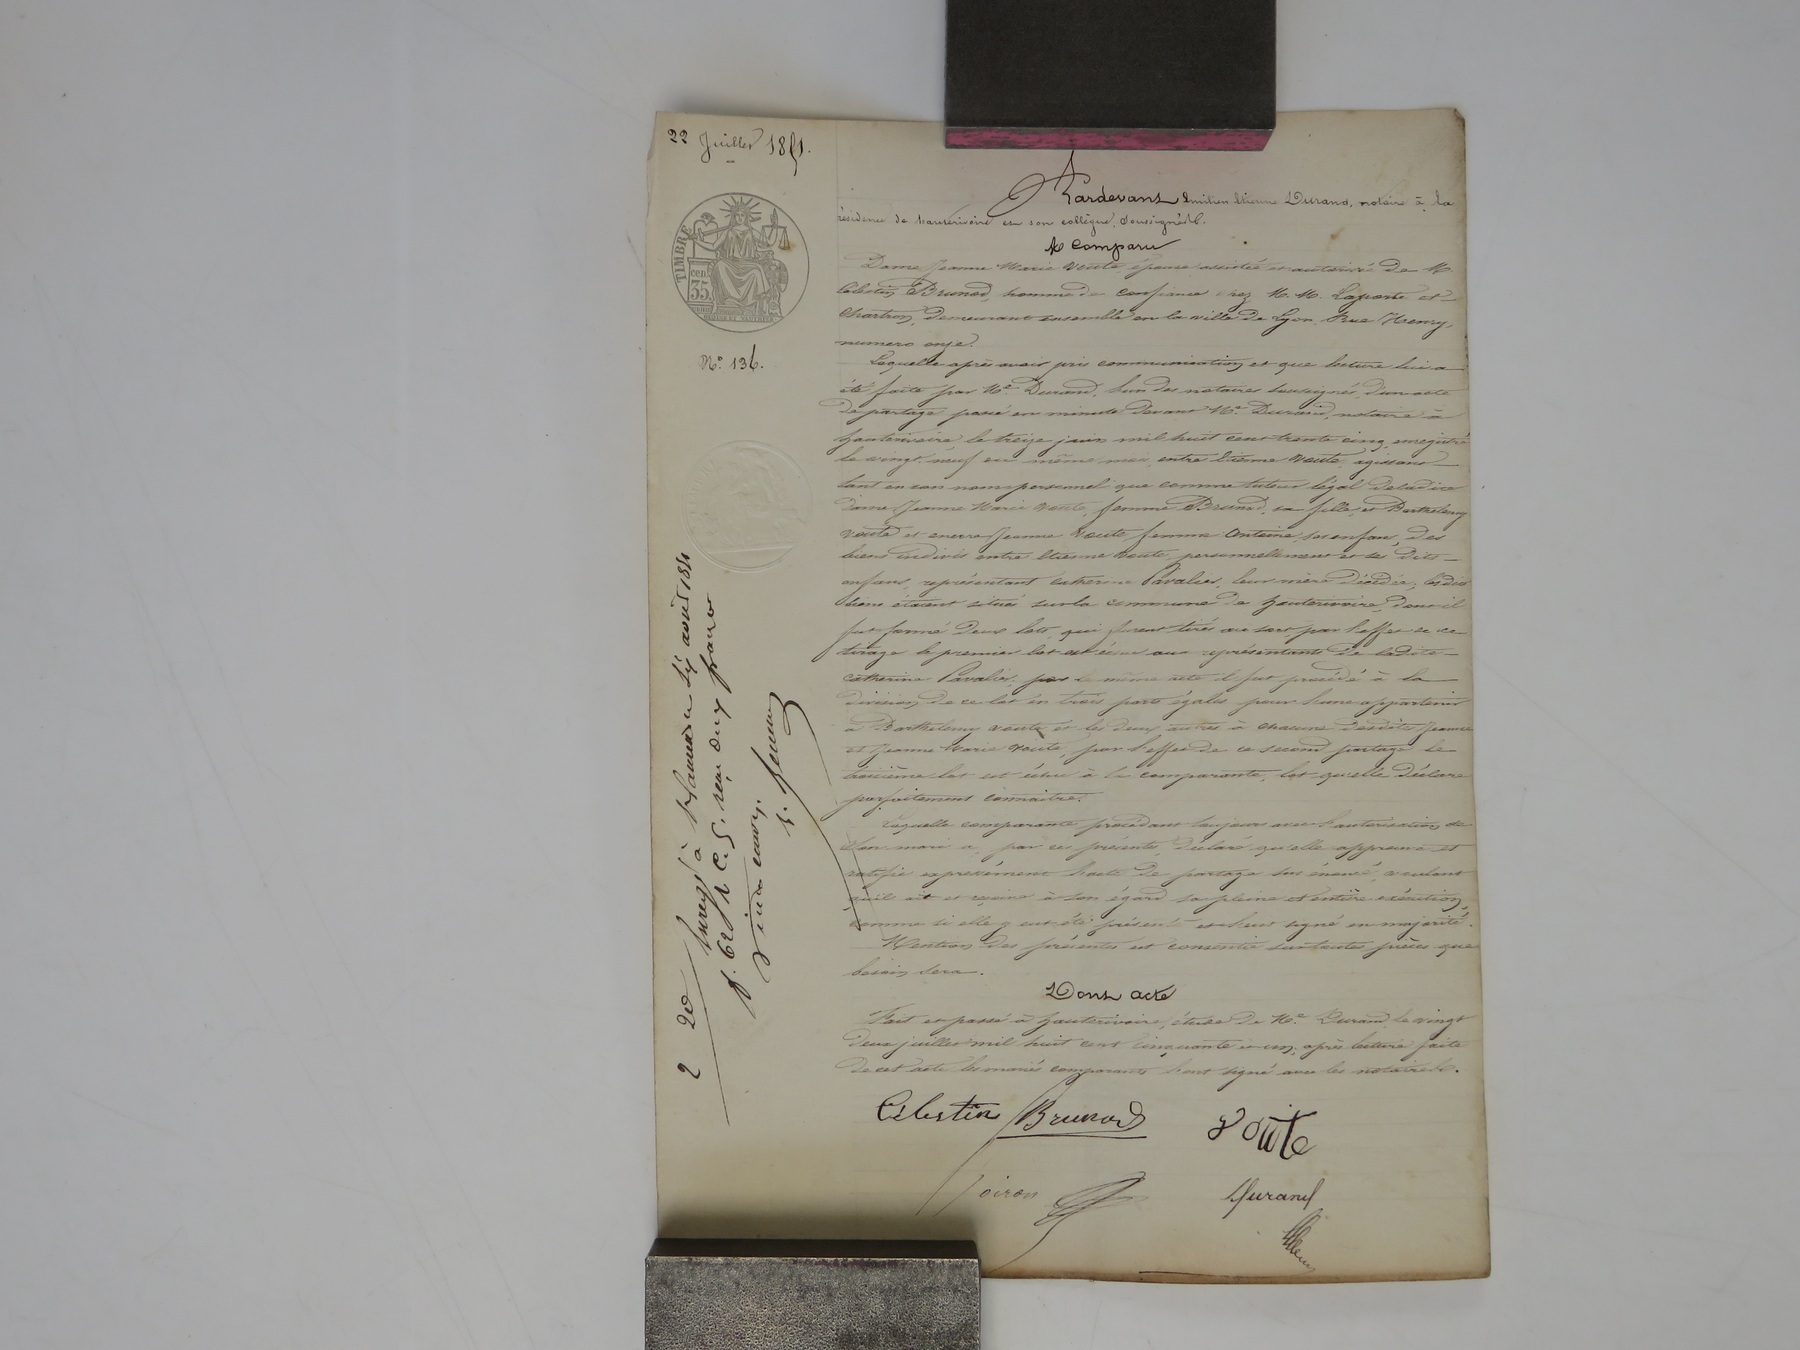 22 Juillet 1851.
TIMBRE
cen
35
N.º 136.
Pardevant Emilien Etienne Durand, notaire à la
résidence de hauterivoire et son collègue, soussignés.
A Comparu
Dame Jeanne Marie Voute épouse assistée et autorisée de M.
Célestin Brunod, homme de confiance chez M. M. Laporte et
Chartron, demeurant ensemble en la ville de Lyon, Rue Henry,
numero onze.
Laquelle après avoir pris communication et que lecture lui a
été faite par Me Durand, l'un des notaires soussignés, d'un acte
de partage passé en minute devant Me Durand, notaire à
hauterivoire, le treize juin mil huit cent trente cinq, enregistré
le vingt neuf du même mois, entre Etienne Voute, agissant
tant en son nom personnel que comme tuteur légal de ladite
dame Jeanne Marie Voute, femme Brunod, sa fille, et Barthelemy
Voute et encore Jeanne Voute femme Antoine, ses enfans, des
biens indivis entre Etienne Voute, personnellement et ses dits
enfans, représentant Catherine Pavalier, leur mère décédée, lesdits
biens étaient situés sur la commune de hauterivoire, dont il
fut formé deux lots, qui furent tirés au sort, par l'effet de ce
tirage le premier lot est échu aux représentants de ladite
Catherine Pavalier, par le même acte il fut procédé à la
division de ce lot en trois parts égales pour l'une appartenir
à Barthelemy Voute et les deux autres à chacune desdites Jeanne
et Jeanne Marie Voute, par l'effet de ce second partage le
troisième lot est échu à la comparante, lot qu'elle déclare
parfaitement connaitre.
Laquelle comparante procédant toujours avec l'autorisation de
son mari a, par ces présentes, déclaré qu'elle approuve et
ratifie expressément l'acte de partage sus énoncé, voulant
qu'il ait et reçoive à son égard sa pleine et entière exécution,
comme si elle y eut été présente et l'eut signé en majorité.
Mention des présentes est consentie sur toutes pièces que
besoin sera.
Dont acte
Fait et passé à hauterivoire, étude de Me Durand, le vingt
deux juillet mil huit cent cinquante et un, après lecture faite
de cet acte les mariés comparants l'ont signé avec les notaires.
Célestin Brunod Voute
Durand
2 20 Enregé à août 1851
f. 62 C. 5. reçu deux francs
vingt centes.